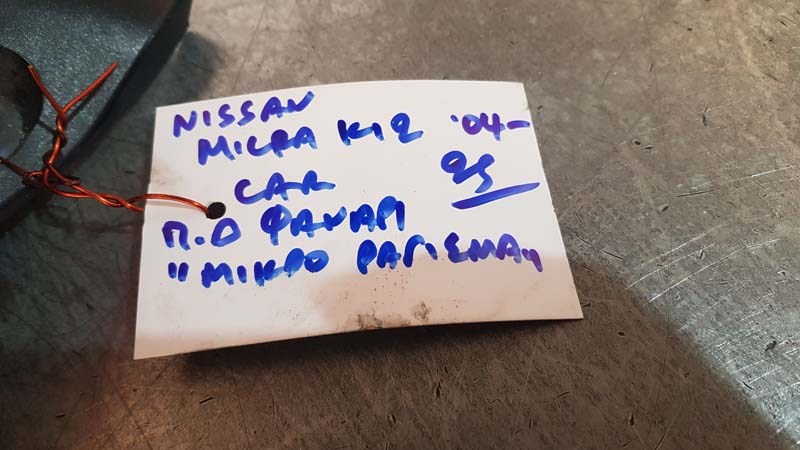 NISSAN
MICRA K12 '04-
25
CAR
Π.Δ ΦΑΝΑΡΙ
"ΜΙΚΡΟ ΡΑΓΙΣΜΑ"